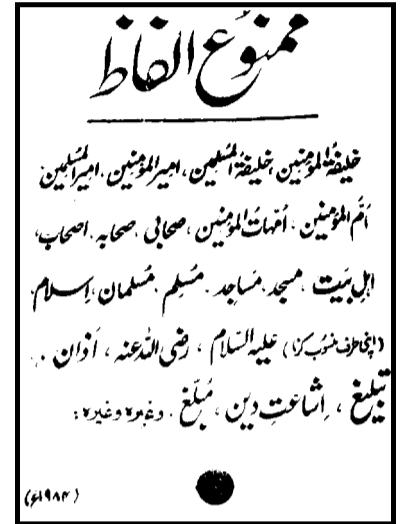 ممنوع الفاظ
خلیفۃُ المؤمنین، خلیفۃُ المسلمین، امیرُ المؤمنین، امیرُ المسلمین
اُمُّ المؤمنین، اُمّہاتُ المؤمنین، صحابی، صحابہ، اصحاب،
اہلِ بیت، مسجد، مساجد، مُسلم، مُسلمان، اِسلام،
(اپنی طرف منسوب کرنا) علیہ السّلام، رضی اللہ عنہ، اذان،
تبلیغ، اِشاعتِ دین، مُبلّغ، وغیرہ وغیرہ:
(۱۹۸۴ء)